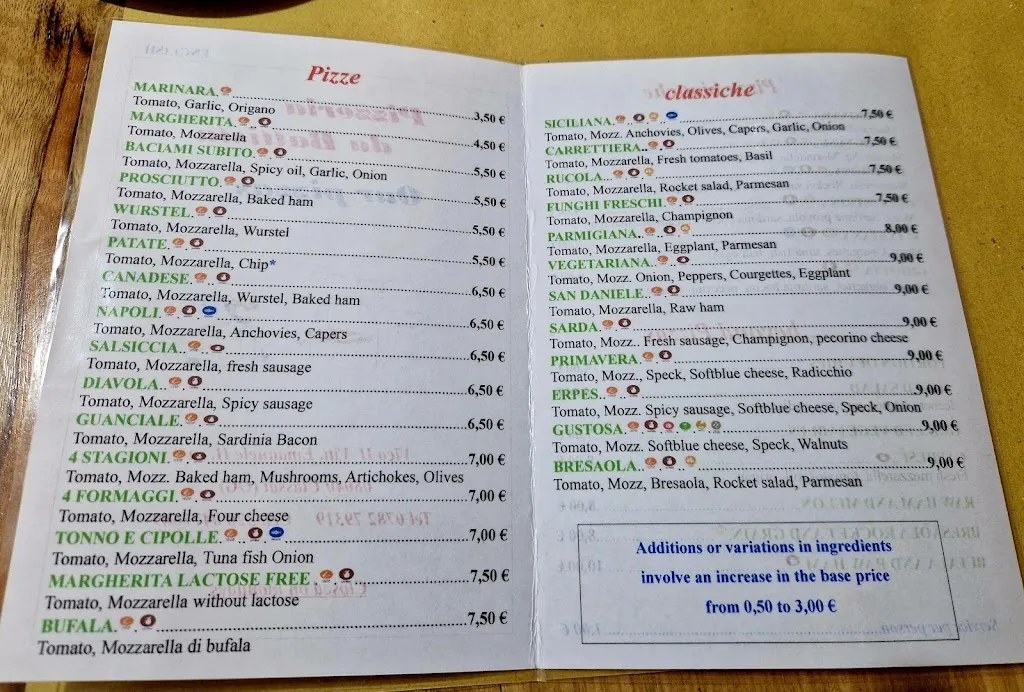 Pizze
MARINARA.......3,50 €
Tomato, Garlic, Origano
MARGHERITA.......4,50 €
Tomato, Mozzarella
BACIAMI SUBITO.......5,50 €
Tomato, Mozzarella, Spicy oil, Garlic, Onion
PROSCIUTTO.......5,50 €
Tomato, Mozzarella, Baked ham
WURSTEL.......5,50 €
Tomato, Mozzarella, Wurstel
PATATE.......5,50 €
Tomato, Mozzarella, Chip*
CANADESE.......6,50 €
Tomato, Mozzarella, Wurstel, Baked ham
NAPOLI.......6,50 €
Tomato, Mozzarella, Anchovies, Capers
SALSICCIA.......6,50 €
Tomato, Mozzarella, fresh sausage
DIAVOLA.......6,50 €
Tomato, Mozzarella, Spicy sausage
GUANCIALE.......6,50 €
Tomato, Mozzarella, Sardinia Bacon
4 STAGIONI.......7,00 €
Tomato, Mozz. Baked ham, Mushrooms, Artichokes, Olives
4 FORMAGGI.......7,00 €
Tomato, Mozzarella, Four cheese
TONNO E CIPOLLE.......7,00 €
Tomato, Mozzarella, Tuna fish Onion
MARGHERITA LACTOSE FREE.......7,50 €
Tomato, Mozzarella without lactose
BUFALA.......7,50 €
Tomato, Mozzarella di bufala
classiche
SICILIANA.......7,50 €
Tomato, Mozz. Anchovies, Olives, Capers, Garlic, Onion
CARRETTIERA.......7,50 €
Tomato, Mozzarella, Fresh tomatoes, Basil
RUCOLA.......7,50 €
Tomato, Mozzarella, Rocket salad, Parmesan
FUNGHI FRESCHI.......7,50 €
Tomato, Mozzarella, Champignon
PARMIGIANA.......8,00 €
Tomato, Mozzarella, Eggplant, Parmesan
VEGETARIANA.......9,00 €
Tomato, Mozz. Onion, Peppers, Courgettes, Eggplant
SAN DANIELE.......9,00 €
Tomato, Mozzarella, Raw ham
SARDA.......9,00 €
Tomato, Mozz.. Fresh sausage, Champignon, pecorino cheese
PRIMAVERA.......9,00 €
Tomato, Mozz., Speck, Softblue cheese, Radicchio
ERPES.......9,00 €
Tomato, Mozz. Spicy sausage, Softblue cheese, Speck, Onion
GUSTOSA.......9,00 €
Tomato, Mozz. Softblue cheese, Speck, Walnuts
BRESAOLA.......9,00 €
Tomato, Mozz, Bresaola, Rocket salad, Parmesan
Additions or variations in ingredients
involve an increase in the base price
from 0,50 to 3,00 €